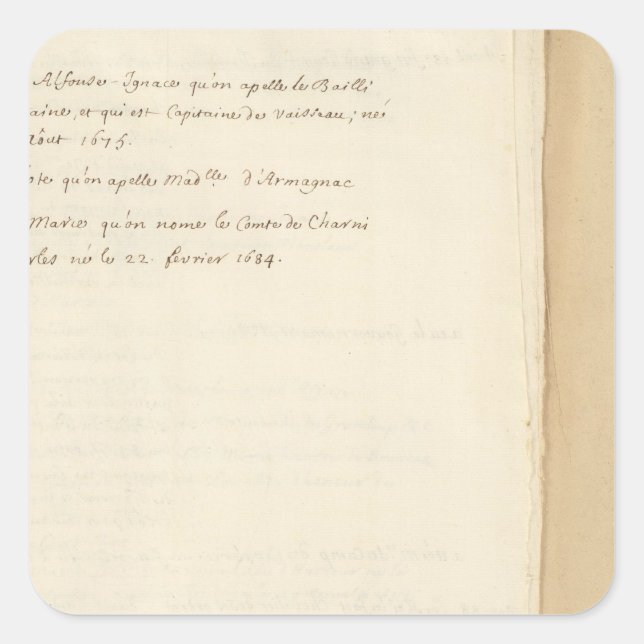 Alfonse-Ignace qu'on apelle le Bailli
aine, et qui est Capitaine de Vaisseau; né
Aôut 1675.
ote qu'on apelle Mad.lle d'Armagnac
Marie qu'on nome le Comte de Charni
rles né le 22. fevrier 1684.